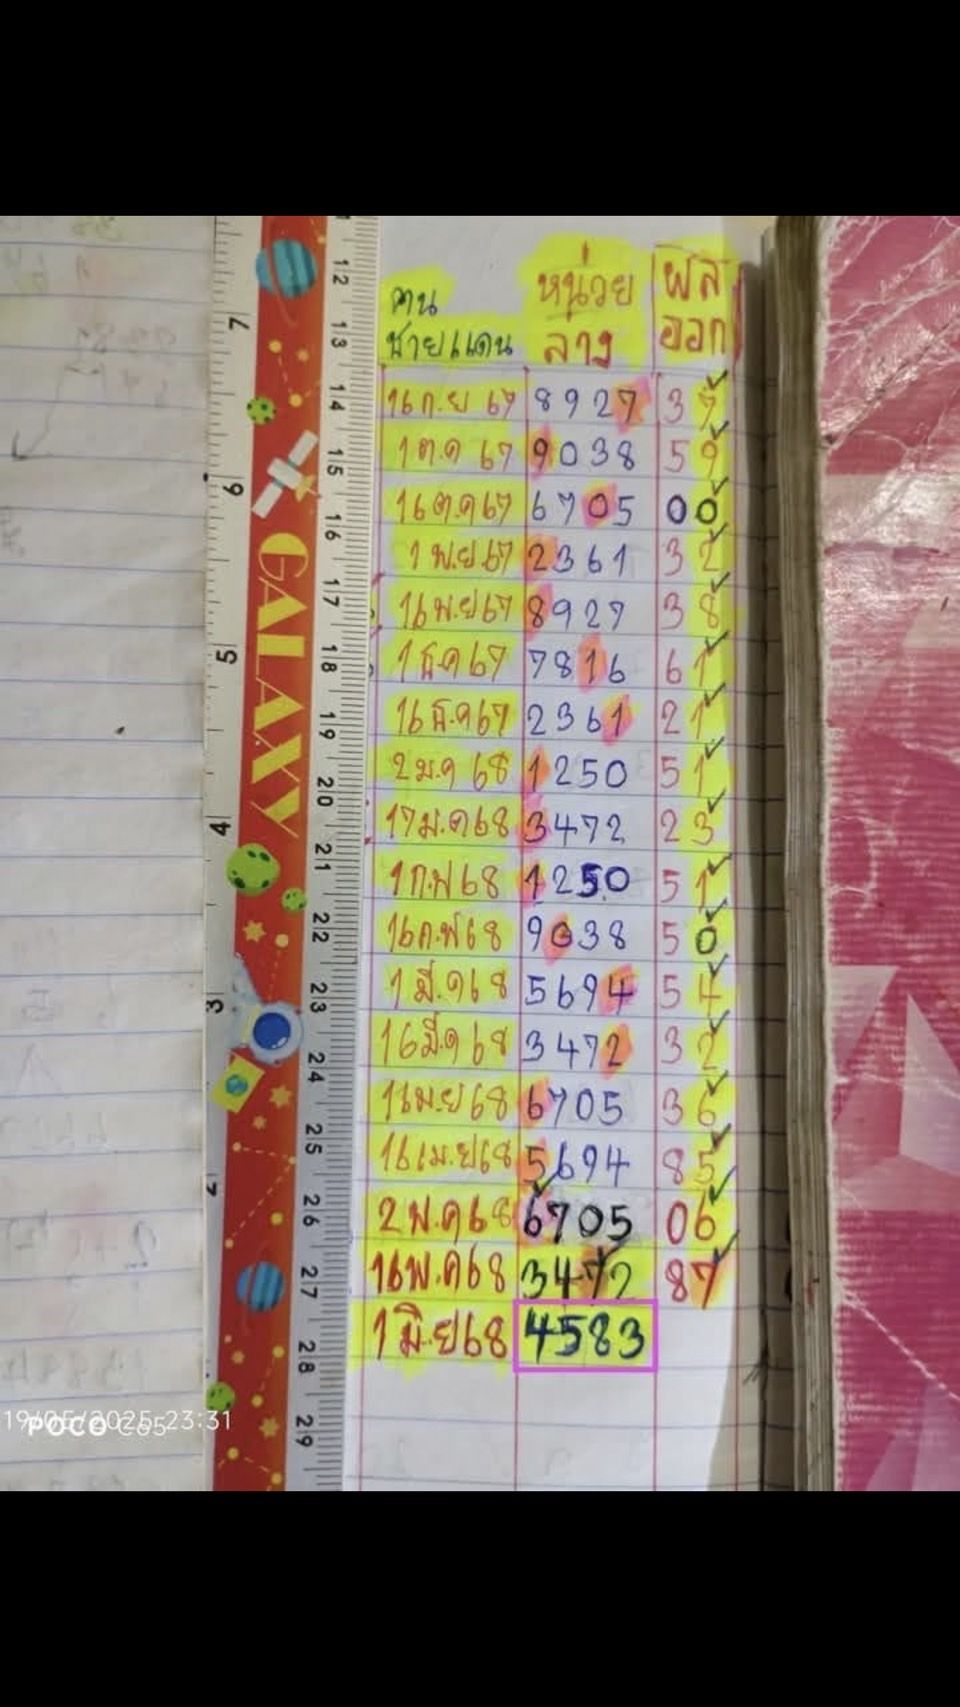 คน หน่วย ผล
ชายแดน ล่าง ออก
16 ก.ย 67 8927 37
1 ต.ค 67 9038 59
16 ต.ค 67 6705 00
1 พ.ย 67 2361 32
16 พ.ย 67 8927 38
1 ธ.ค 67 7816 61
16 ธ.ค 67 2361 21
2 ม.ค 68 1250 51
17 ม.ค 68 3472 23
1 ก.พ 68 1250 51
16 ก.พ 68 9038 50
1 มี.ค 68 5694 54
16 มี.ค 68 3472 32
1 เม.ย 68 6705 36
16 เม.ย 68 5694 85
2 พ.ค 68 6705 06
16 พ.ค 68 3472 87
1 มิ.ย 68 4583
GALAXY
12
13
14
15
16
17
18
19
20
21
22
23
24
25
26
27
28
29
7
6
5
4
3
19/05/2025 23:31
POCO C65